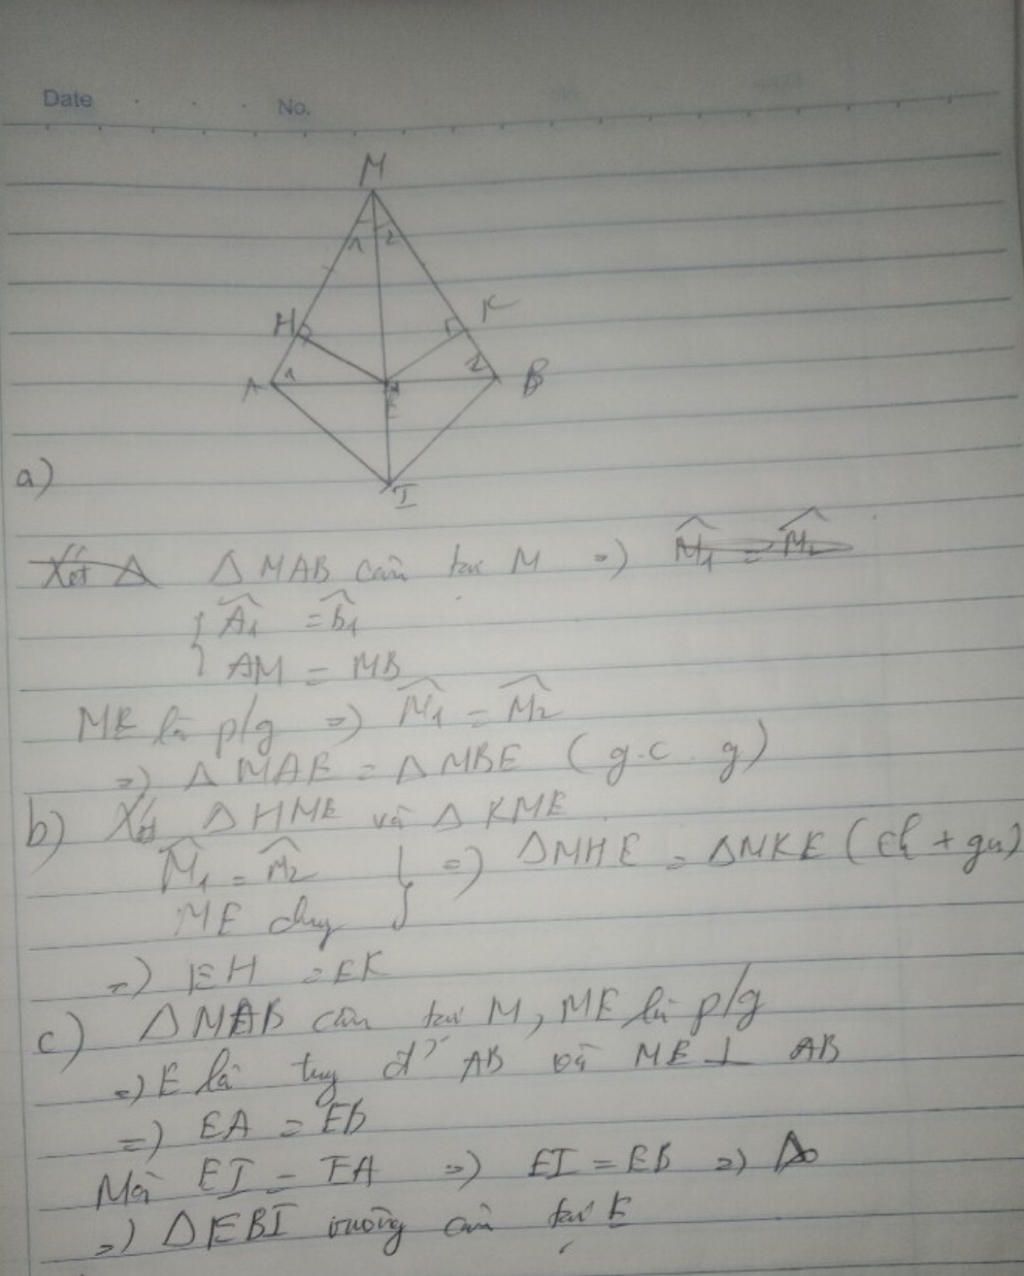 Date No.
M
1 2
H K
A 1 2 B
E
I
a)
Xét Δ Δ MAB cân tại M => M̂1 = M̂2
Â1 = B̂1
AM = MB
ME là p/g => M̂1 = M̂2
=> Δ MAE = Δ MBE (g.c.g)
b) Xét Δ HME và Δ KME
M̂1 = M̂2 } => ΔMHE = ΔMKE (ch + gn)
ME chug
=> EH = EK
c) Δ MAB cân tại M, ME là p/g
=> E là tug đ' AB và ME ⊥ AB
=> EA = EB
Mà EI = EA => EI = EB => Δ
=> Δ EBI vuông cân tại E